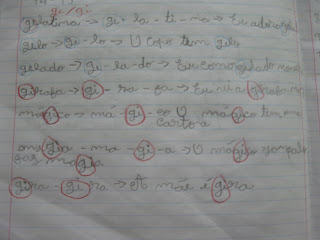 gi/gi
gelatina → gi - la - ti - na → Eu adoro
gelo → gi - lo → O copo tem gelo
gelado → gu - la - do → Eu como gelado
girafa → gi - ra - fa → Eu vi a girafa
mágico → má - gi - co O mágico tem
cartola
ma - gi - a → O mágico
magia
gira - gi ra → A mãe é gira